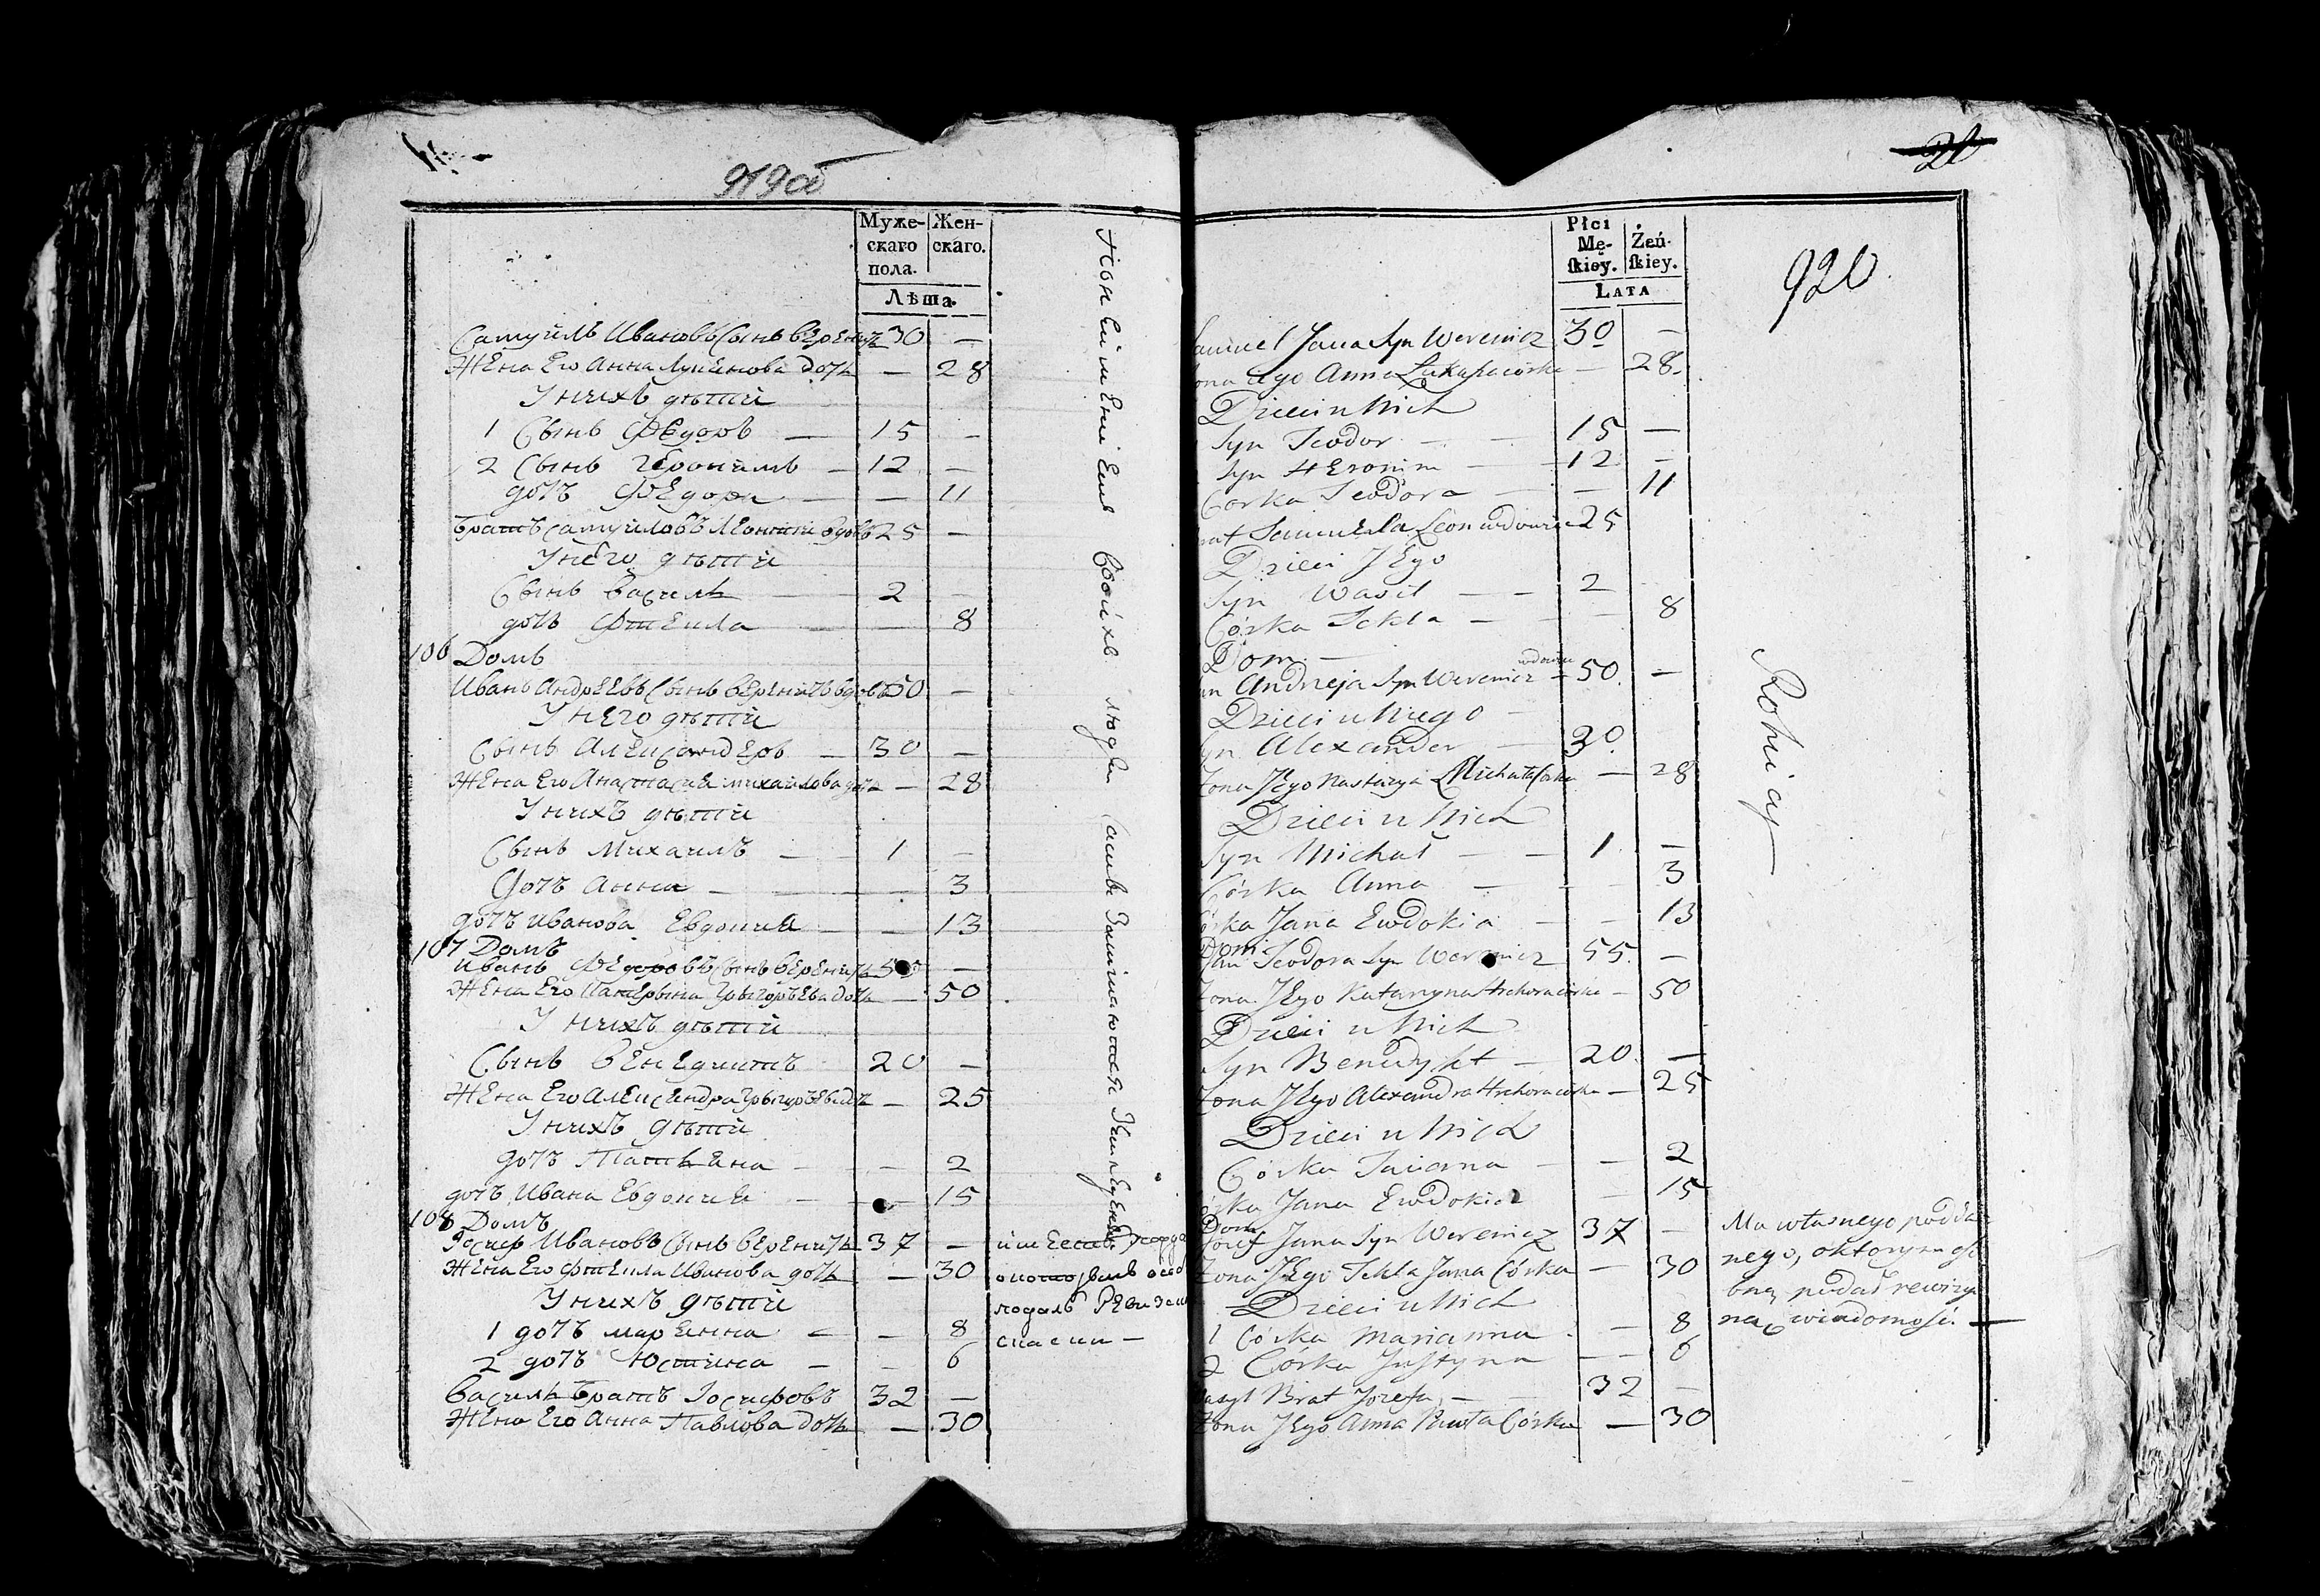 919об
Муже-
скаго
пола.
Жен-
скаго.
Лѣта.
Самуилъ Ивановъ Сынъ Вереничъ 30 —
Жена Его Анна Лукянова дочь — 28
У нихъ дѣти
1 Сынъ Федоръ — 15 —
2 Сынъ Геронимъ — 12 —
дочь Федора — — 11
Братъ Самуиловъ Леонтий вдовъ 25 —
У него дѣти
Сынъ Василь — 2
дочь Фтекла — — 8
106 Домъ
Иванъ Андреевъ Сынъ Вереничъ вдовъ 50 —
У него дѣти
Сынъ Александеръ — 30 —
Жена Его Анастасия михайлова дочь — 28
У нихъ дѣти
Сынъ Михаилъ — 1 —
дочь Анна — — 3
дочь Иванова Евдокия — — 13
107 Домъ
Иванъ Федоровъ Сынъ Вереничъ 55 —
Жена Его Катерына Грыгорьева дочь — 50
У нихъ дѣти
Сынъ Венедиктъ 20 —
Жена Его Александра Грыгорьева дочь — 25
У нихъ дѣти
дочь Татьяна — — 2
дочь Ивана Евдокия — — 15
108 Домъ
Іосиф Ивановъ Сынъ Вереничъ 37 —
Жена Его Фтекла Иванова дочь — 30
У нихъ дѣти
1 дочь марянна — — 8
2 дочь Юстина — — 6
Василь Братъ Іосифовъ 32 —
Жена Его Анна Павлова дочь — 30
своихъ людей
подалъ Ревизские
скаски —
21
Płci
Mę-
ſkiey.
Żeń-
ſkiey.
LATA
920
Samuel Jana Syn Werenicz 30 —
Zona Jego Anna Łukasza córka — 28.
Dzieci u Nich
Syn Teodor — — 15 —
Syn HEronim — — 12 —
Corka Teodora — — 11
Brat Samuela Leon wdowiec 25
Dzieci JEgo
Syn Wasil — — 2
Córka Tekla — — 8
Dom —
Jan Andrzeja Syn Werenicz wdowiec — 50. —
Dzieci u Niego —
Syn Alexander — 30.
Zona JEgo Nastazya Michała Corka — 28
Dzieci u Nich
Syn Michał — — 1. —
Córka Anna — — 3
Córka Jana Ewdokia — — 13
Dom
Jan Teodora Syn Werenicz 55. —
Zona JEgo Katarzyna Hrehora córka — 50
Dzieci u Nich
Syn Benedykt — 20. —
Zona JEgo Alexandra Hrehora córka — 25
Dzieci u Nich
Córka Taciana — — 2
Córka Jana Ewdokia — 15
Dom
Jozef Jana Syn Werenicz 37 —
Zona JEgo Tekla Jana Córka — 30
Dzieci u Nich
1 Córka Marianna — 8
2 Córka Justyna — — 6
Wasyl Brat Jozefa — 32 —
Zona JEgo Anna Pawła Córka — 30
Rohiacz
Ma własnego podda-
nego, o którym oso-
bną podał rewizy-
ną wiadomość. —